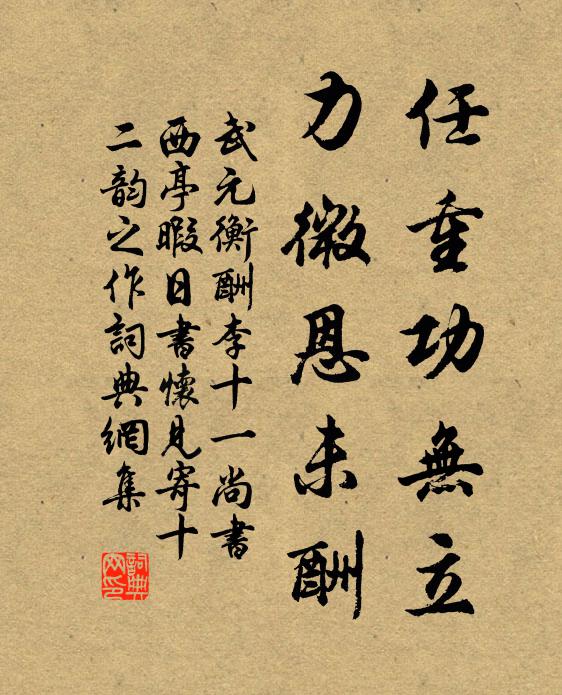 任重功無立
力微恩未酬
武元衡酬李十一尚書
西亭暇日書懷見寄十
二韵之作詞典網集
詞典
网印